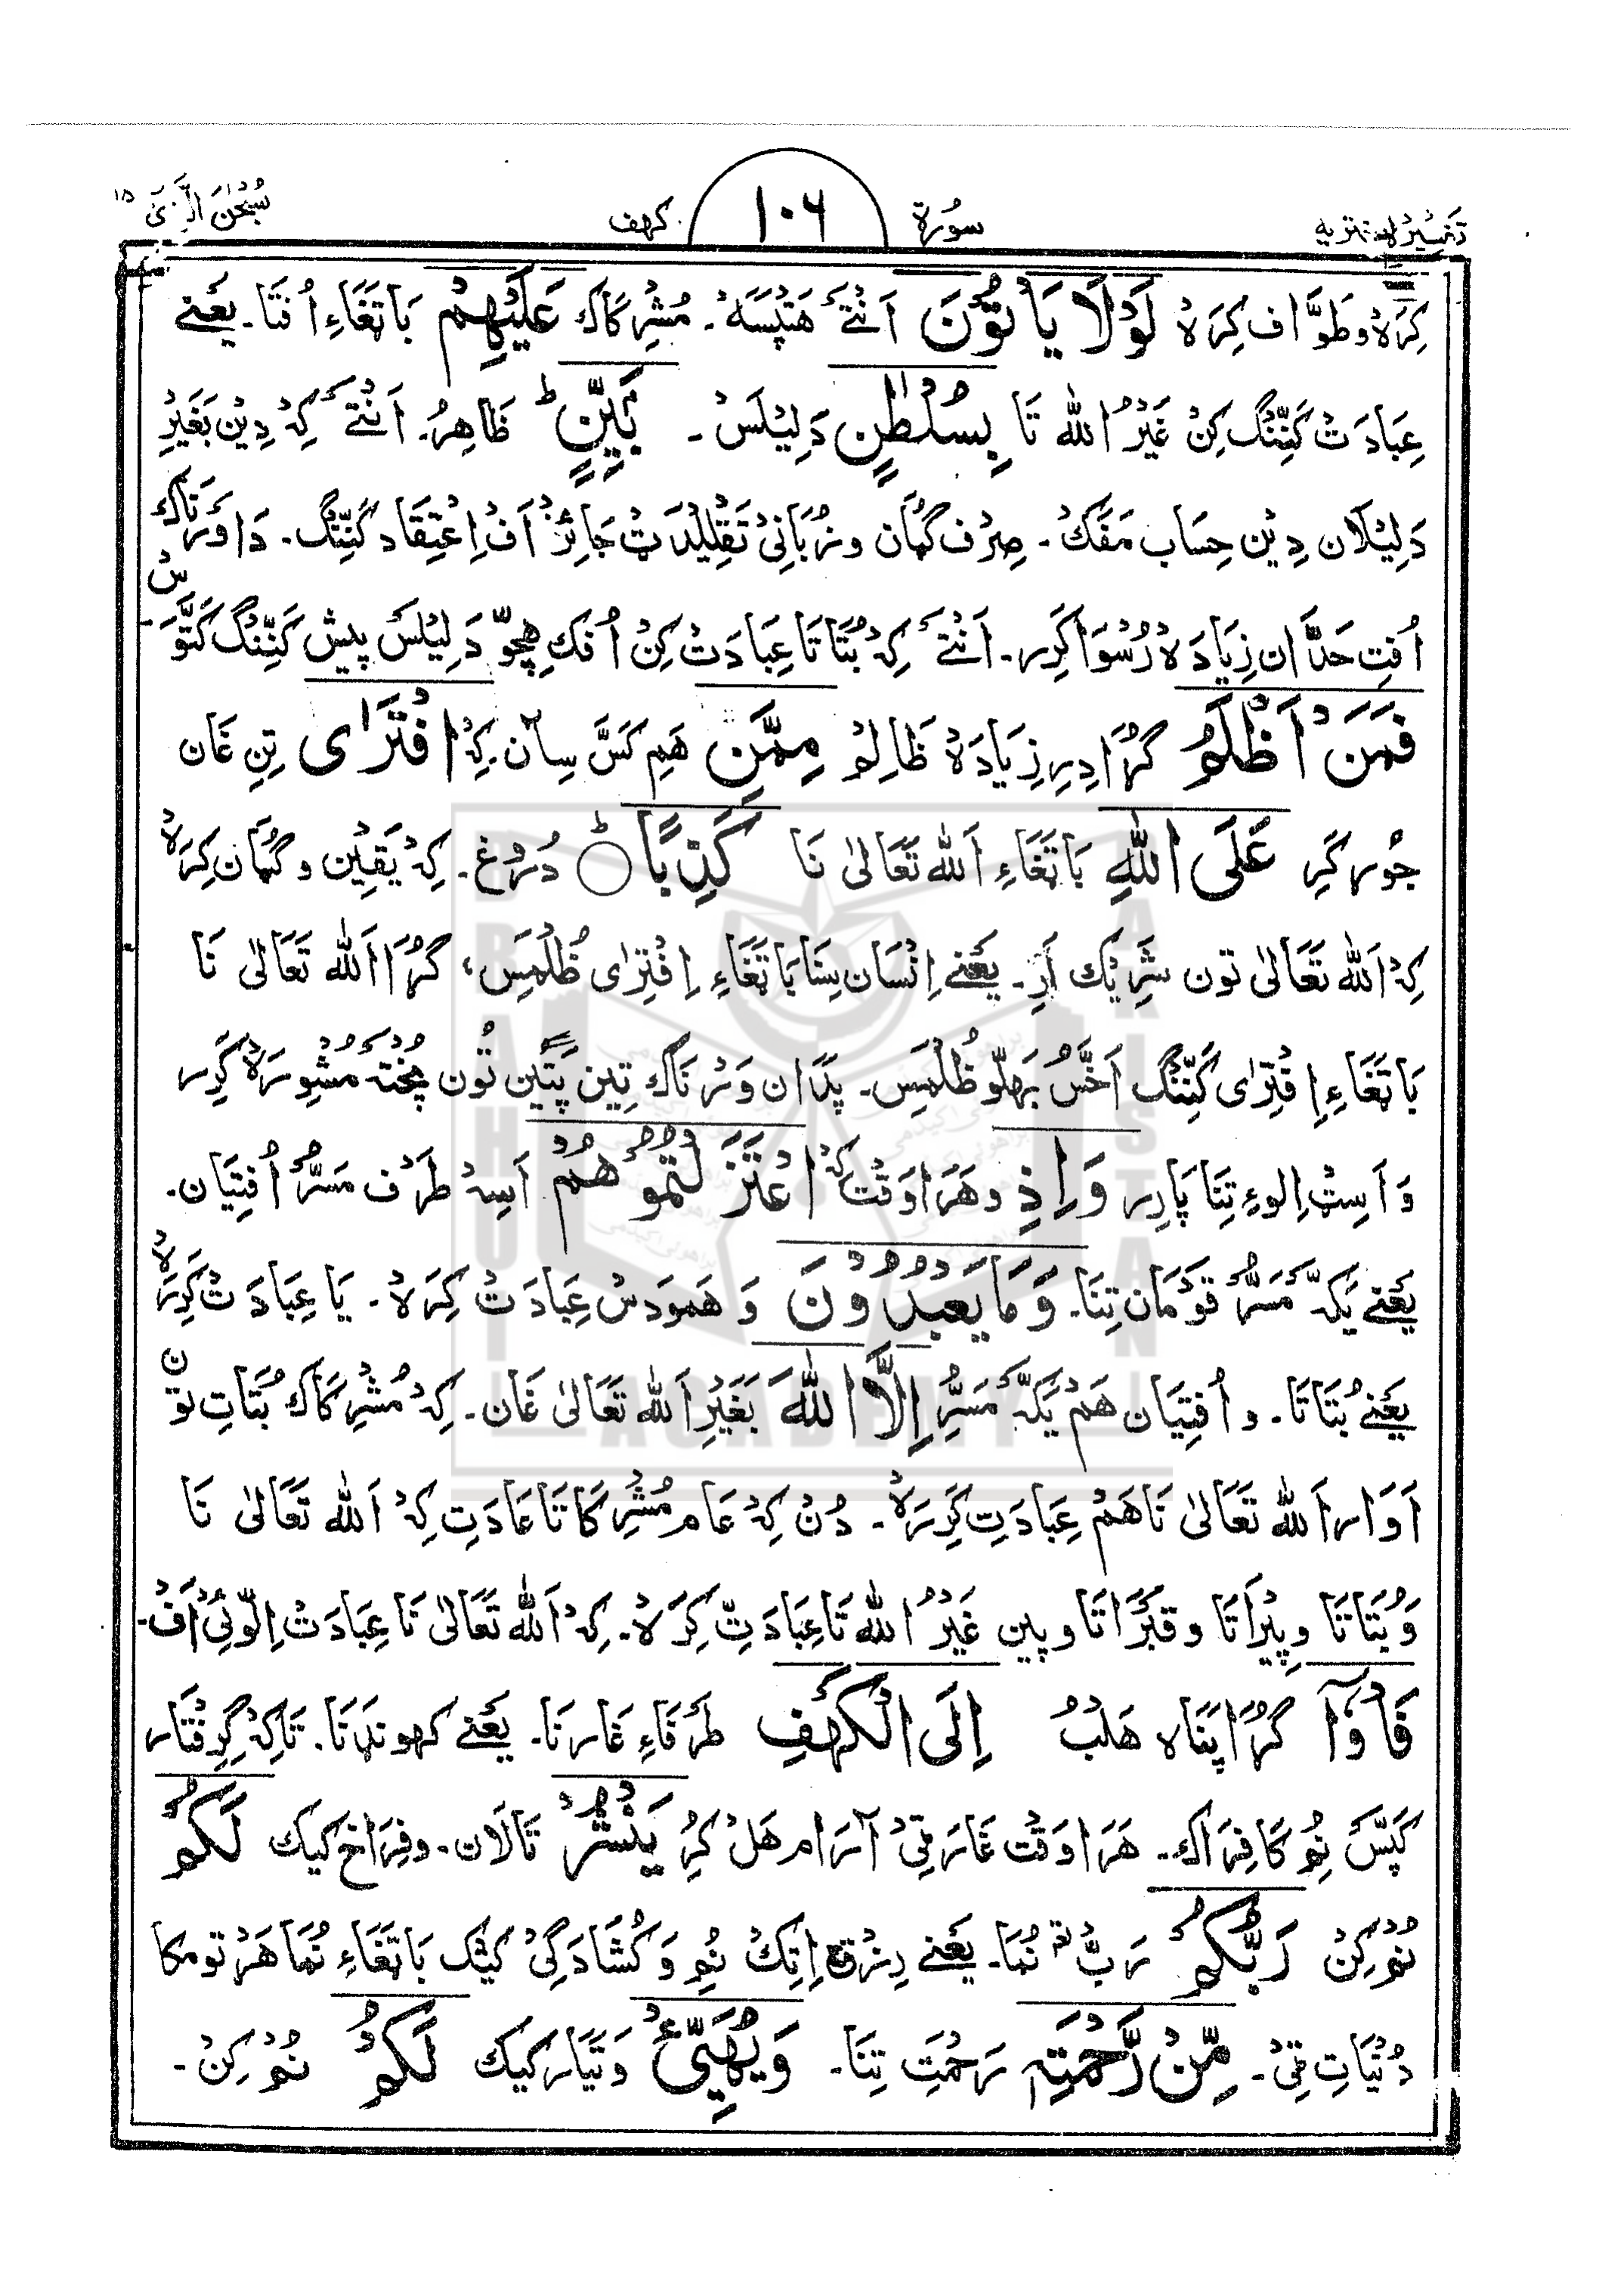 سُبْحٰنَ الَّذِیٓ ۱۵
کہف ۱۰۶ سُورَۃ
تفسیر
کِرَہْ وطَوَّاف کِرَہْ لَوْلَا یَاْتُوْنَ اَنْتَےَ ھَتِپَسَہْ۔ مُشْرِکَاک عَلَیْھِمْ بَاتَغَاءِ اُفتَا۔ یَعْنے
عِبَادَتْ کَنِّنْگ کِنْ غَیْرُ اللّٰہ تَا بِسُلْطٰنٍ دَلِیْلَسْ۔ بَیِّنٍ ؕ ظَاھِرُ۔ اَنْتَےَ کِہْ دِیْن بَغَیْرِ
دَلِیْلَان دِیْن حِسَاب مَفَّکْ۔ صِرْف گُمَان وزُبَانِیْ تَقْلِیْدَتْ جَائِزْ اَفْ اِعْتِقَاد کَنِّنْگ۔ دَاوَرْنَاک
اُفتِ حَدَّان زِیَادَہْ رُسْوَا کَرِر۔ اَنْتَےَ کِہْ بُتَاتَا عِبَادَتْ کِنْ اُفْکِ ھِچّو دَلِیْلَسْ پیش کَنِّنْگ کَتَّوَسْ۔
فَمَنْ اَظْلَمُ گُڑَا دِیرِ زِیَادَہْ ظَالِمْ مِمَّنِ ھَمِ کَسَّ سِآن۔ کِہْ افْتَرٰی تِنِ غَان
جُوْر کَرِ عَلَی اللّٰہِ بَاتَغَاءِ اَللّٰہ تَعَالیٰ نَا کَذِبًا ؕ دُرُوْغ۔ کِہْ یَقِیْن و گُمَان کِرَہْ
کِہْ اَللّٰہ تَعَالیٰ تون شَرِیْک اَرِ۔ یَعْنے اِنْسَان سِنَا بَاتَغَاءِ اِفْتِرٰی ظُلْمَسِ، گُڑَا اَللّٰہ تَعَالیٰ نَا
بَاتَغَاءِ اِفْتِرٰی کَنِّنْگ اَخَّسْ بَھلّو ظُلْمَسِ۔ پَدَان وَرْنَاک تِین پَتِین تُون پُخْتَہ مَشْوِرَہْ کَرِر
وَاَسِٹْ اِلوءِ تِنَا پَارِر وَاِذِ وھَرَاوَقْت کِہْ اعْتَزَلْتُمُوْھُمْ اَسِہْ طَرَف مَسُّرْ اُفْتِیَان۔
یَعْنے یَکَہّ مَسُّرْ قَوْمَان تِنَا۔ وَمَا یَعْبُدُوْنَ وَ ھَمودَسْ عِبَادَتْ کِرَہْ۔ یَا عِبَادَتْ کَرِرَہْ
یَعْنے بُتَاتَا۔ و اُفْتِیَان ھَمْ یَکَہّ مَسُّرْ اِلَّا اللّٰہَ بَغَیْرِ اَللّٰہ تَعَالیٰ غَان۔ کِہْ مُشْرِکَاک بُتَاتِ تون
اَوَار اَللّٰہ تَعَالیٰ نَا ھَمْ عِبَادَتِ کَرِرَہْ۔ دُنْ کِہْ عَام مُشْرِکَاتَا عَادَتِ کِہْ اَللّٰہ تَعَالیٰ نَا
وَبُتَاتَا وپِیْرَاتَا وقَبْرَاتَا وپِین غَیْرُ اللّٰہ تَا عِبَادَتِ کِرَہْ۔ کِہْ اَللّٰہ تَعَالیٰ نَا عِبَادَتْ اِلّوئِیْ اَفْ۔
فَاْوٗٓا گُڑَا پَنَاہ ھَلْبُ اِلَی الْکَھْفِ طَرَفَاءِ غَارنَا۔ یَعْنے کہوندنَا۔ تَاکِہْ گِرِفْتَار
کَپَّسْ نُمِ کَافِرَاک۔ ھَرَاوَقْت غَارَٹِیْ آرَام ھَلْ کَرُ یَنْشُرْ تَالَان۔ وفِرَاخ کیک لَکُمْ
نُمْ کِنْ رَبُّکُمْ رَبّ نُمَا۔ یَعْنے رِزْق اِتِکْ نُمِ وَکُشَادَگِیْ کیْک بَاتَغَاءِ نُمَا ھَرْ تومکا
دُنْیَاتِ ٹِیْ۔ مِّنْ رَّحْمَتِہٖ رَحْمَتِ تِنَا۔ وَیُھَیِّیْٔ وَتَیَّار کیک لَکُمْ نُمْ کِنْ۔
BRAHUI ACADEMY PAKISTAN